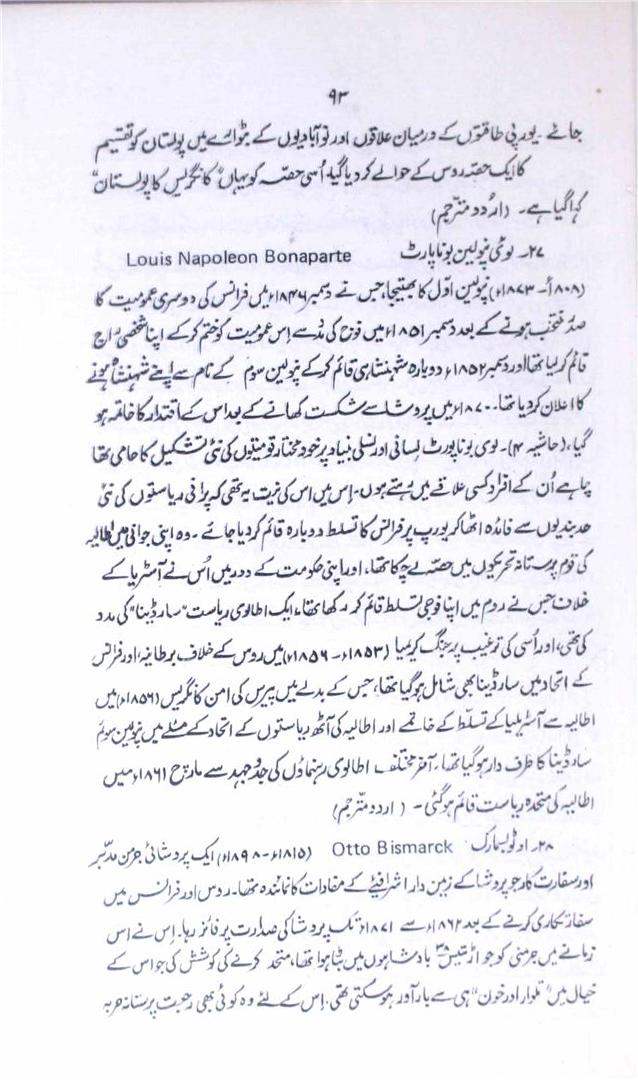 ۹۳
جانے۔ یورپی طاقتوں کے درمیان علاقوں اور نوآبادیوں کے بٹوارے میں پولستان کو تقسیم
کا ایک حصہ روس کے حوالے کر دیا گیا، اُسی حصّہ کو یہاں ”کانگریس کا پولستان“
کہا گیا ہے۔ (اردو مترجم)
۲۷۔ لوئی نپولین بونا پارٹ Louis Napoleon Bonaparte
(۱۸۰۸ء – ۱۸۷۳ء) نپولین اوّل کا بھتیجا، جس نے دسمبر ۱۸۴۶ء میں فرانس کی دوسری عمومیت کا
صدر منتخب ہونے کے بعد دسمبر ۱۸۵۱ء میں فوج کی مدد سے اِس عمومیت کو ختم کر کے اپنا شخصی راج
قائم کر لیا تھا اور دسمبر ۱۸۵۲ء دوبارہ شہنشاہی قائم کر کے نپولین سوم کے نام سے اپنے شہنشاہ ہونے
کا اعلان کر دیا تھا۔ ۱۸۷۰ء میں پروشا سے شکست کھانے کے بعد اس کے اقتدار کا خاتمہ ہو
گیا، (حاشیہ ۴)۔ لوی بونا پورٹ لسانی اور نسلی بنیاد پر خود مختار قومیتوں کی نئی تشکیل کا حامی تھا
چاہے اُن کے افراد کسی علاقے میں بستے ہوں۔ اِس میں اس کی نیت یہ تھی کہ پرانی ریاستوں کی نئی
حد بندیوں سے فائدہ اٹھا کر یورپ پر فرانس کا تسلط دوبارہ قائم کر دیا جائے۔ وہ اپنی جوانی میں اطالیہ
کی قوم پرستانہ تحریکوں میں حصہ لے چکا تھا، اور اپنی حکومت کے دور میں اُس نے آسٹریا کے
خلاف جس نے روم میں اپنا فوجی تسلط قائم کر رکھا تھا، ایک اطالوی ریاست ”سارڈینا“ کی مدد
کی تھی، اور اُسی کی ترغیب پر جنگ کریمیا (۱۸۵۳ء – ۱۸۵۶ء) میں روس کے خلاف برطانیہ اور فرانس
کے اتحاد میں سارڈینا بھی شامل ہو گیا تھا، جس کے بدلے میں پیرس کی امن کانگریس (۱۸۵۶ء) میں
اطالیہ سے آسٹریلیا کے تسلّط کے خاتمے اور اطالیہ کی آٹھ ریاستوں کے اتحاد کے مسئلے میں نپولین سوم
سارڈینا کا طرف دار ہو گیا تھا، آخر مختلف اطالوی رہنماؤں کی جدوجہد سے مارچ ۱۸۶۱ء میں
اطالیہ کی متحدہ ریاست قائم ہو گئی۔ (اردو مترجم)
۲۸۔ اوٹو بسمارک Otto Bismarck (۱۸۱۵ء – ۱۸۹۸ء) ایک پروشائی جرمن مدبّر
اور سفارت کار جو پروشا کے زمین دار اشرافیے کے مفادات کا نمائندہ تھا۔ روس اور فرانس میں
سفارتکاری کرنے کے بعد ۱۸۶۲ء سے ۱۸۷۱ء تک پروشا کی صدارت پر فائز رہا۔ اِس نے اس
زمانے میں جرمنی کو جو اڑتیس ۳۸ بادشاہوں میں بٹا ہوا تھا، متحد کرنے کی کوشش کی جو اس کے
خیال میں ”تلوار اور خون“ ہی سے بار آور ہو سکتی تھی۔ اِس کے لئے وہ کوئی بھی رجعت پرستانہ حربہ